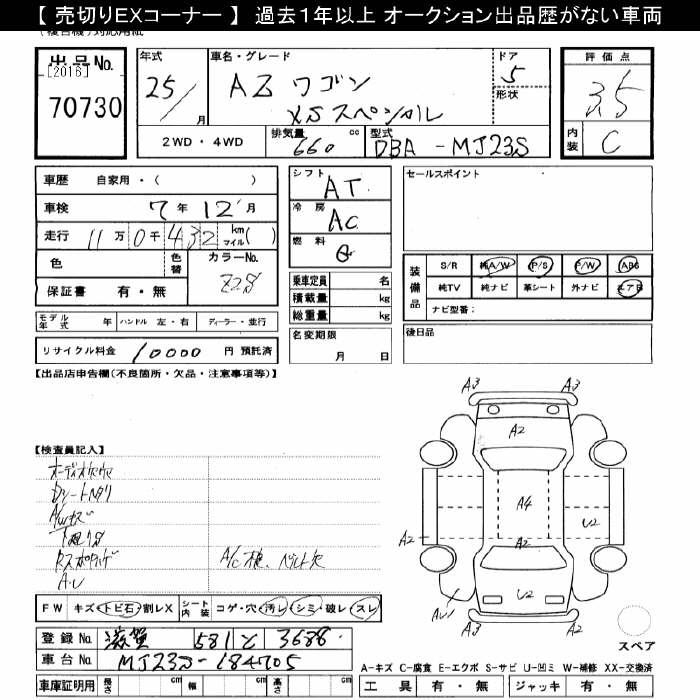 【 売切りEXコーナー 】 過去１年以上 オークション出品歴がない車両
出品No.
[2016]
70730
年式
25/
月
車名・グレード
AZ ワゴン
XSスペシャル
ドア
5
形状
2WD ・ 4WD
排気量
660
cc
型式
DBA - MJ23S
評価点
3.5
内装
C
車歴 自家用・( )
車検 7年 12月
走行 11万 0千 432 km マイル( )
色
色替
カラーNo.
Z2S
保証書 有・無
シフト
AT
冷房
AC
燃料
G
乗車定員 名
積載量 kg
総重量 kg
名変期限
月 日
セールスポイント
装備品
S/R 純A/W P/S P/W ABS
純TV 純ナビ 革シート 外ナビ エアB
ナビ型番:
後日品
モデル年式 年 ハンドル 左・右 ディーラー・並行
リサイクル料金 10000 円 預託済
【出品店申告欄(不良箇所・欠品・注意事項等)】
【検査員記入】
A/Wキズ
A・U
FW キズ トビ石・割レX シート内装 コゲ・穴・汚レ・シミ・破レ・スレ
登録No. 滋賀 581 と 3688
車台No. MJ23S-184705
車庫証明用 長さ cm 幅 cm 高さ cm
A3 A3
A2
A4
U2
A2
A2
U2
A3
スペア
A-キズ C-腐食 E-エクボ S-サビ U-凹ミ W-補修 XX-交換済
工具 有・無 ジャッキ 有・無